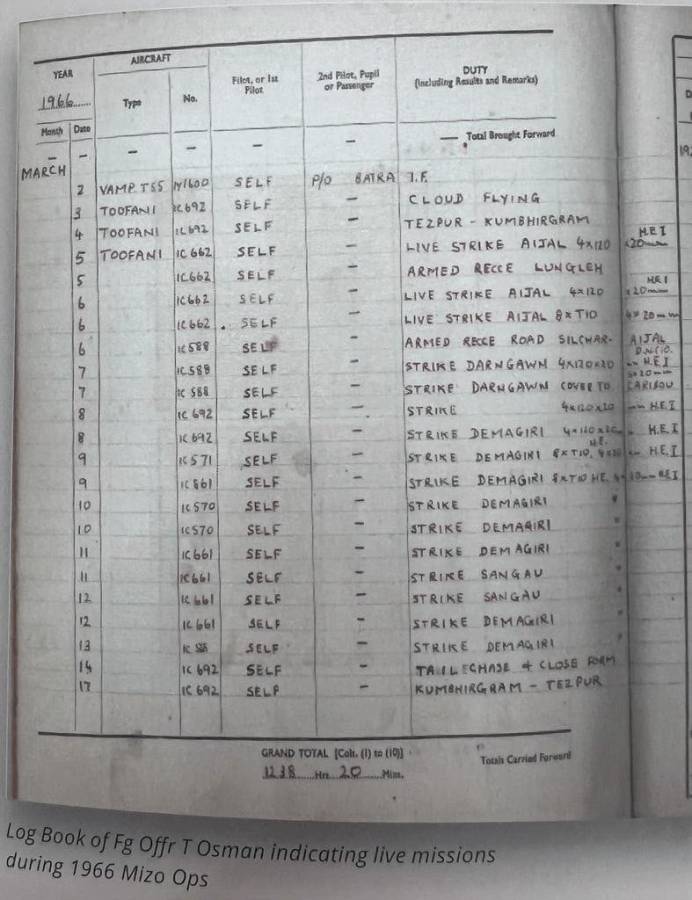 YEAR AIRCRAFT Pilot, or 1st Pilot 2nd Pilot, Pupil or Passenger DUTY (Including Results and Remarks)
1966 Type No.
Month Date
— — — — — — — Total Brought Forward
MARCH
2 VAMP. T55 SELF P/O BATRA I.F.
3 TOOFANI IC692 SELF — CLOUD FLYING
4 TOOFANI IC692 SELF — TEZPUR - KUMBHIRGRAM
5 TOOFANI IC662 SELF — LIVE STRIKE AIJAL 4x120 x20mm HEI
5 IC662 SELF — ARMED RECCE LUNGLEH
6 IC662 SELF — LIVE STRIKE AIJAL 4x120 x20mm HEI
6 IC662 SELF — LIVE STRIKE AIJAL 8xT10 4x20mm
6 IC588 SELF — ARMED RECCE ROAD SILCHAR- AIJAL
7 IC588 SELF — STRIKE DARNGAWN 4x120x20 HEI
7 IC588 SELF — STRIKE DARNGAWN COVER TO CARIBOU
8 IC692 SELF — STRIKE 4x120x20 mm HEI
8 IC692 SELF — STRIKE DEMAGIRI 4x120x20 HEI
9 IC571 SELF — STRIKE DEMAGIRI 8xT10, HE HEI
9 IC861 SELF — STRIKE DEMAGIRI 8xT10 HE, HEI
10 IC570 SELF — STRIKE DEMAGIRI "
10 IC570 SELF — STRIKE DEMAGIRI "
11 IC661 SELF — STRIKE DEMAGIRI "
11 IC661 SELF — STRIKE SANGAU "
12 IC661 SELF — STRIKE SANGAU "
12 IC661 SELF — STRIKE DEMAGIRI "
13 SELF — STRIKE DEMAGIRI "
14 IC692 SELF — TAILECHASE & CLOSE FORM
17 IC692 SELF — KUMBHIRGRAM - TEZPUR
GRAND TOTAL [Cols. (1) to (10)] Totals Carried Forward
1238 Hrs. 20 Mins.
Log Book of Fg Offr T Osman indicating live missions
during 1966 Mizo Ops